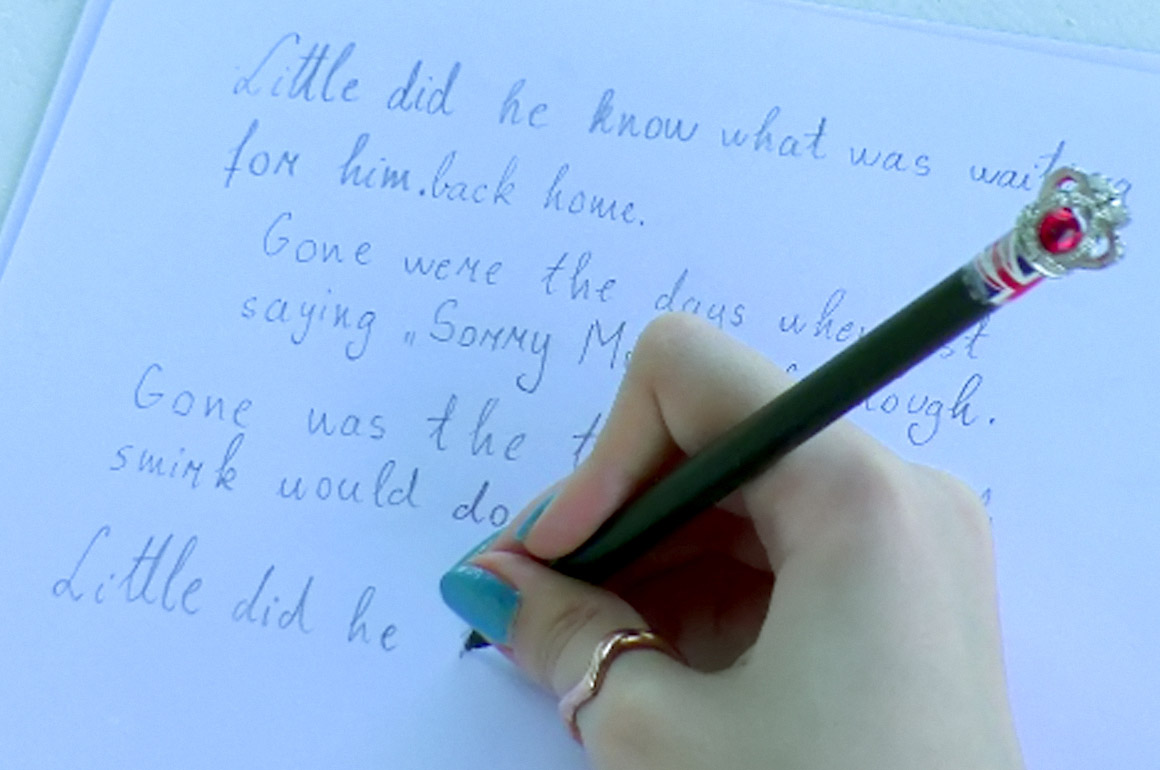 Little did he know what was waiting
for him.back home.
Gone were the days when
saying „Sorry
Gone was the
smirk would do
Little did he